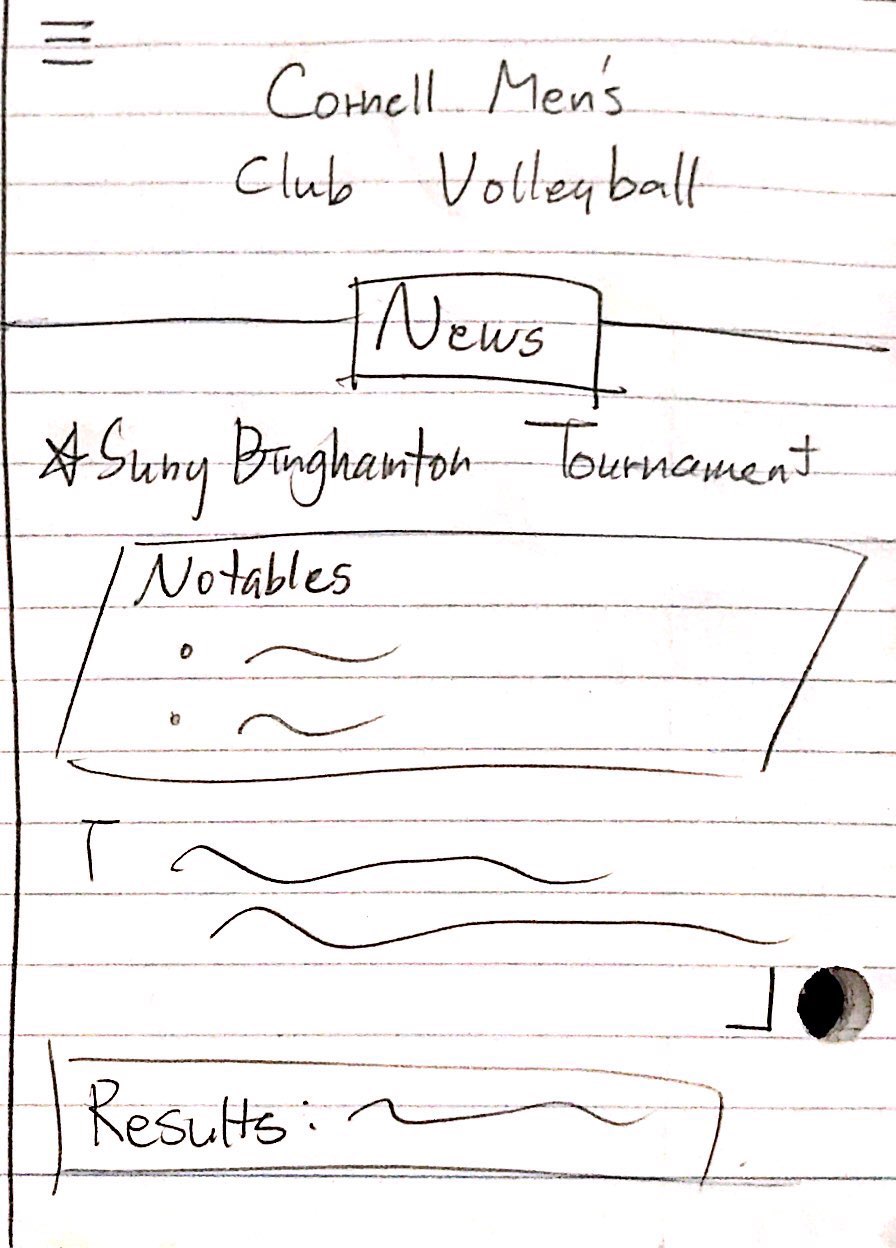 Cornell Men's
Club Volleyball
News
Suny Binghamton Tournament
Notables
Results: